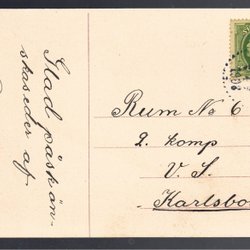 Glad påskön-
skas eder af
Rum No 6
2. komp
V. S.
Karlsbo